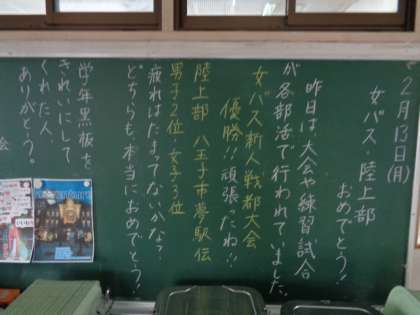 2月13日(月)
女バス・陸上部
おめでとう!
昨日は、大会や練習試合
が各部活で行われていました。
女バス新人戦都大会
優勝!!頑張ったね!!
陸上部 八王子市夢駅伝
男子2位・女子3位
疲れはたまってないかな?
どちらも、本当におめでとう!
学年黒板を
きれいにして
くれた人、
ありがとう。